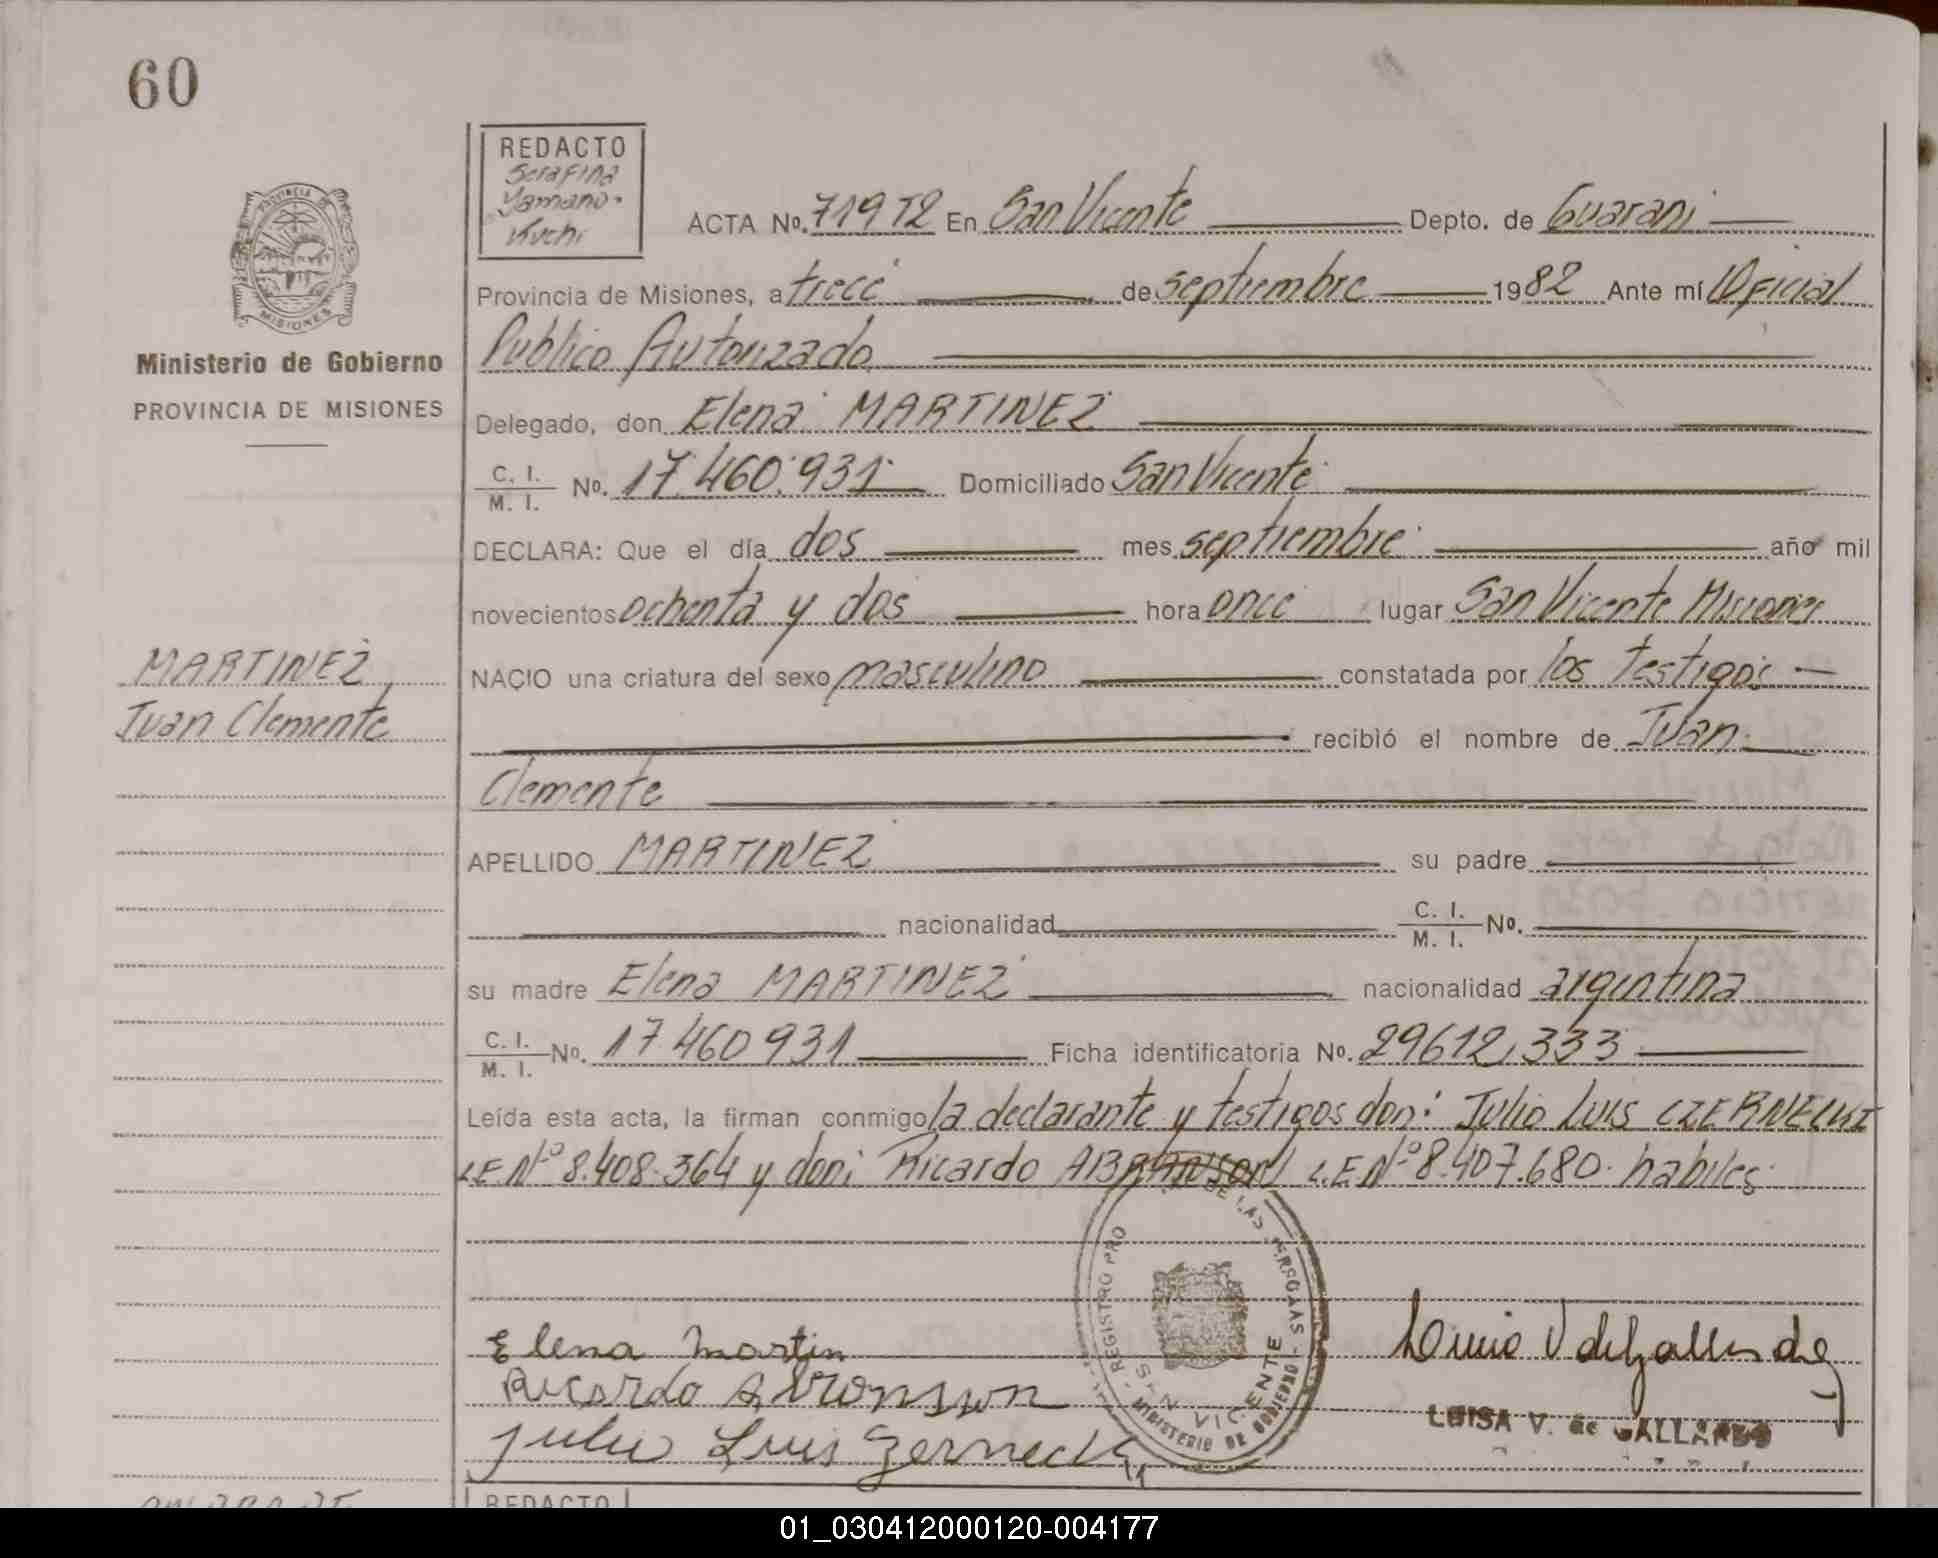 60
REDACTO
Serafina
Yamano-
Kuchi
PROVINCIA
MISIONES
Ministerio de Gobierno
PROVINCIA DE MISIONES
ACTA No. 719 T2 En San Vicente Depto. de Guarani
Provincia de Misiones, a trece de septiembre 1982 Ante mí Oficial
Publico Autorizado
Delegado, don Elena MARTINEZ
C. I. / M. I. No. 17.460.931 Domiciliado San Vicente
DECLARA: Que el día dos mes septiembre año mil
novecientos ochenta y dos hora once lugar San Vicente Misiones
MARTINEZ
Juan Clemente
NACIO una criatura del sexo masculino constatada por los testigos
recibió el nombre de Juan
Clemente
APELLIDO MARTINEZ su padre
nacionalidad C. I. / M. I. No.
su madre Elena MARTINEZ nacionalidad argentina
C. I. / M. I. No. 17 460 931 Ficha identificatoria No. 29612,333
Leída esta acta, la firman conmigo la declarante y testigos don: Julio Luis
L.E.Nº 8.408.364 y don: Ricardo ABRANSON L.E.Nº 8.407.680. habiles
REGISTRO PRO DE LAS PERSONAS
SAN VICENTE
MINISTERIO DE GOBIERNO
Elena Martin
Ricardo Abronsson
Julio Luis Zerneck
LUISA V. de GALLARDO
REDACTO
01_030412000120-004177